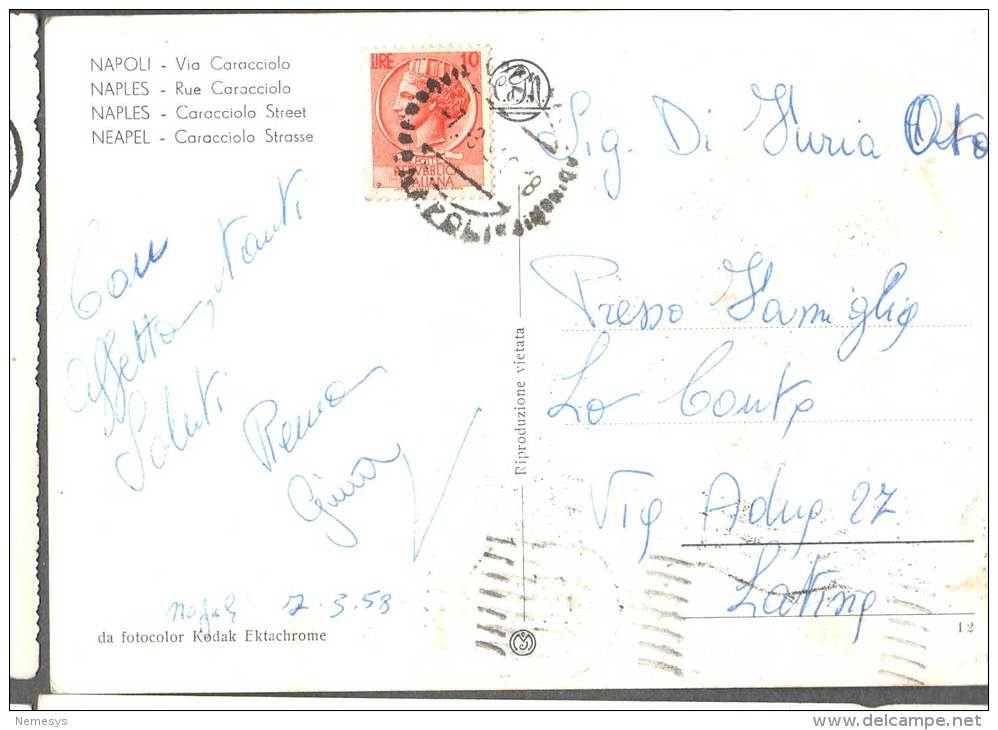 NAPOLI - Via Caracciolo
NAPLES - Rue Caracciolo
NAPLES - Caracciolo Street
NEAPEL - Caracciolo Strasse
LIRE 10
POSTE
REPUBBLICA
ITALIANA
Con
affetto, tanti
Saluti
Remo
Gina
Napoli 7.3.58
da fotocolor Kodak Ektachrome
Riproduzione vietata
Sig. Di Furia
Presso Famiglia
Lo Conte
Via Adua 27
Latina
12
Nemesys
www.delcampe.net